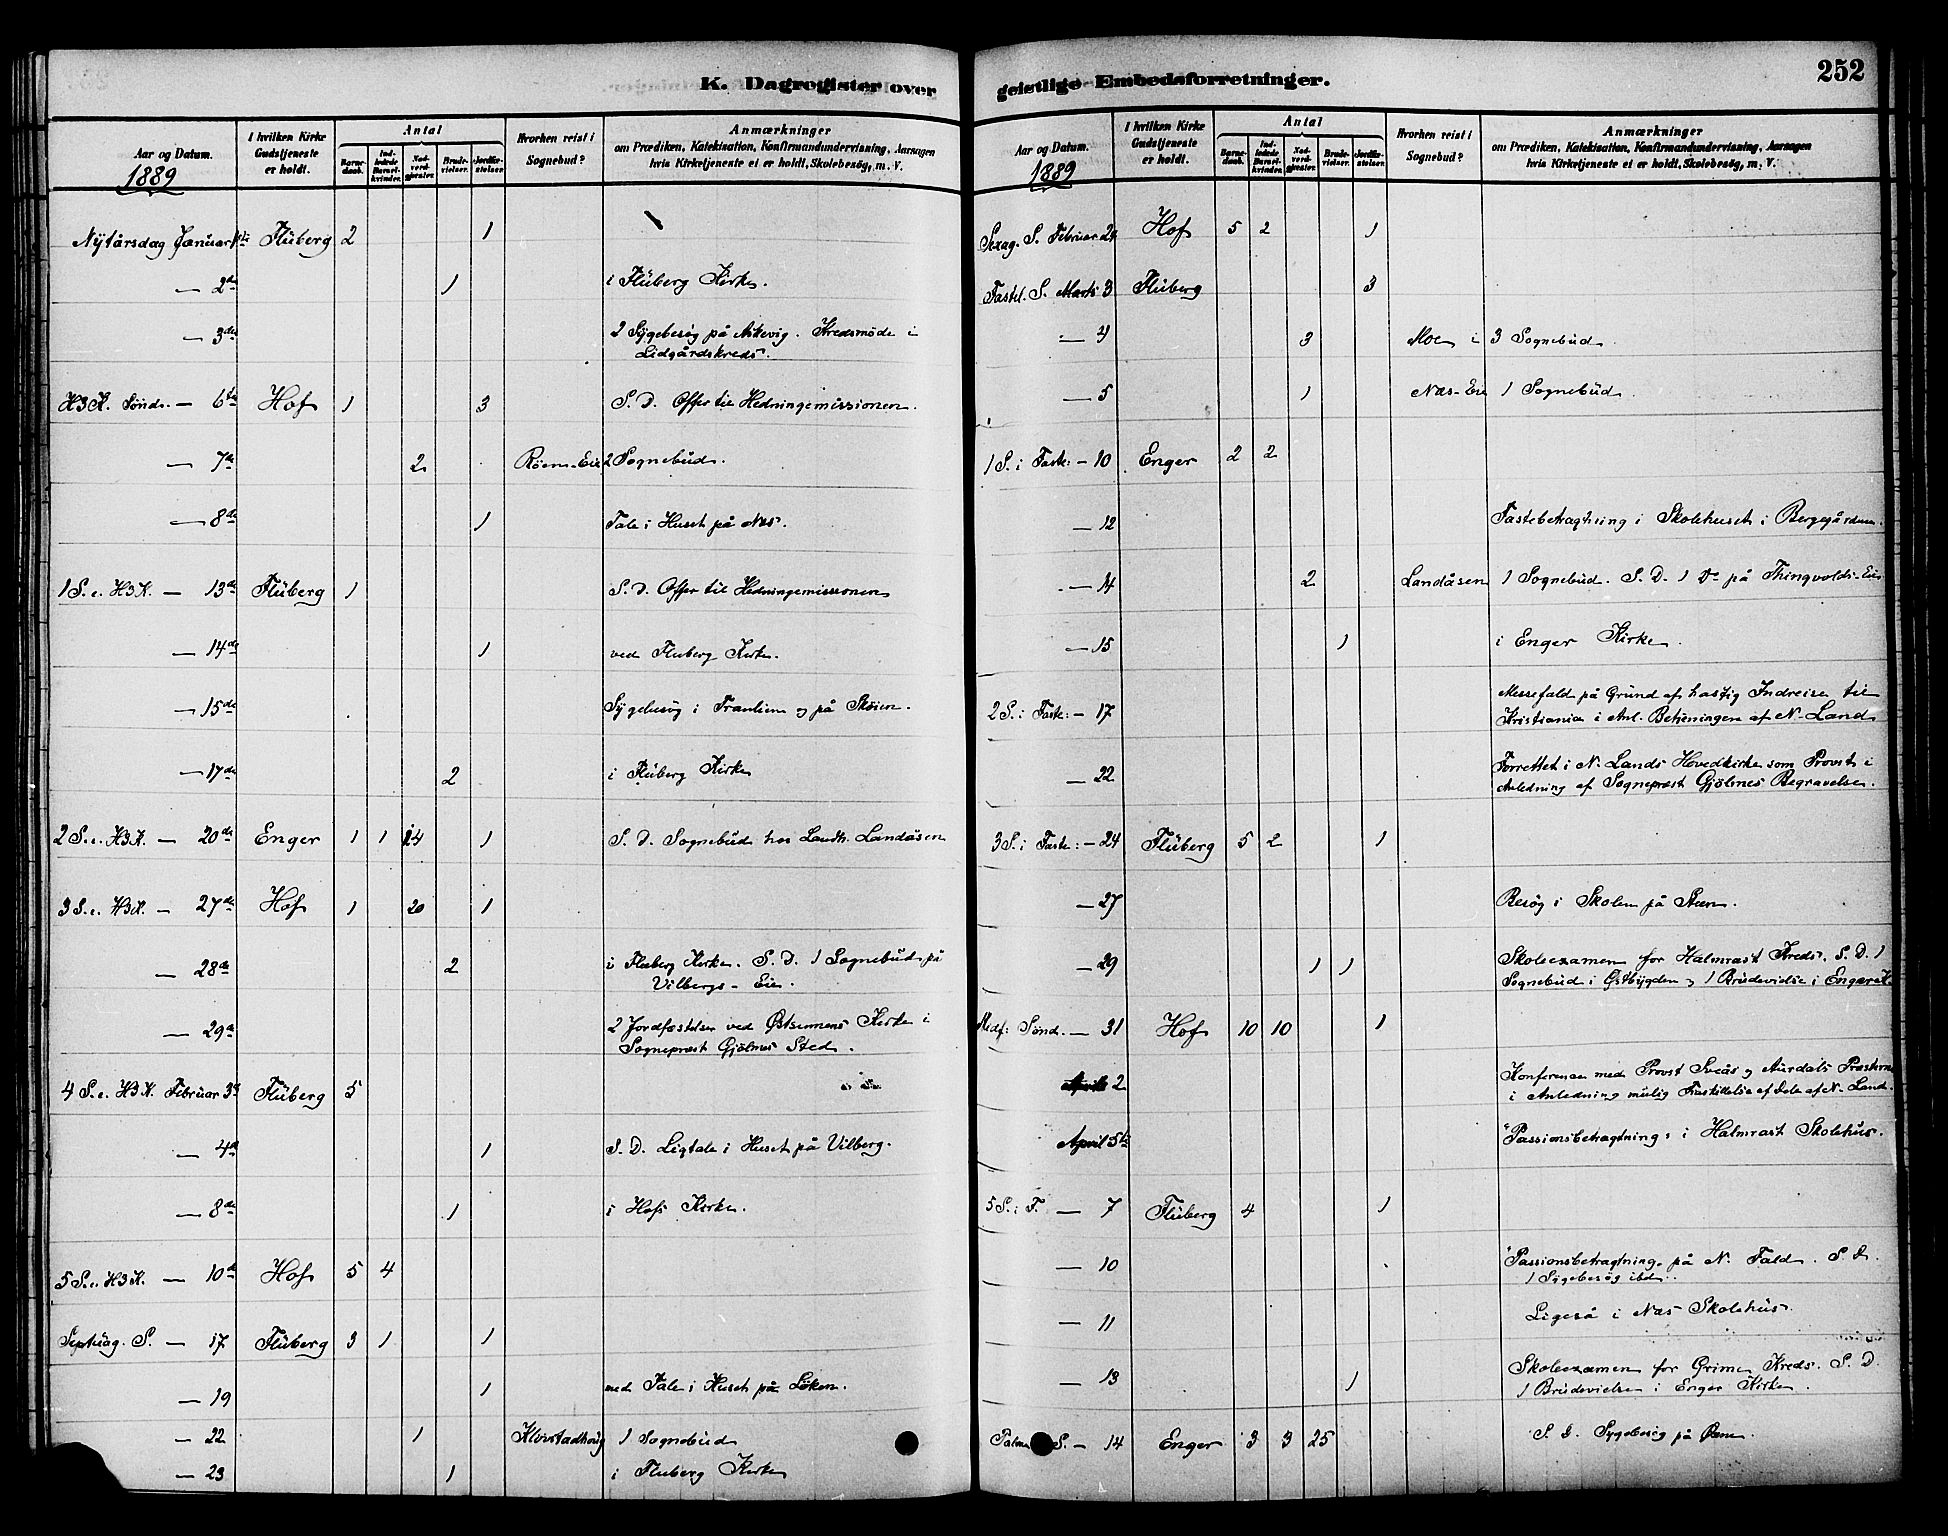 K. Dagregister over
Aar og Datum.
1889
I hvilken Kirke Gudstjeneste er holdt.
Antal
Barnedaab.
Indledede Barselkvinder.
Nadverdgjæster.
Brudevielser.
Jordfæstelser.
Hvorhen reist i Sognebud?
Anmærkninger
om Prædiken, Katekisation, Konfirmandundervisning, Aarsagen
hvis Kirketjeneste et er holdt, Skolebesøg, m. V.
Nytårsdag Januar 1ste Flüberg 2 1
— 2de 1 i Flüberg Kirke.
— 3die 2 Sygebesøg på Askevig. Kredsmøde i
Lidgårdskreds.
H3K. Sønd. — 6te Hof 1 3 S. D. Offer til Hedningemissionen.
— 7de 2 Røens-Eie 2 Sognebud.
— 8de 1 Tale i Huset på Næs.
1 S. e. H3K. — 13de Flüberg 1 S. D. Offer til Hedningemissionen
— 14de 1 ved Fluberg Kirke.
— 15de Sygebesøg i Tranlien og på Skøien.
— 17de 2 i Flüberg Kirke
2 S. e. H3K. — 20de Enger 1 1 14 1 S. D. Sognebud hos Landh. Landåsen
3 S. e. H3K. — 27de Hof 1 20 1
— 28de 2 i Fluberg Kirke. S. D. 1 Sognebud på
Vilbergs-Eie.
— 29de 2 Jordfæstelser ved Østsinnens Kirke i
Sognepræst Gjölmes Sted.
4 S. e. H3K. Februar 3die Flüberg 5
— 4de 1 S. D. Ligtale i Huset på Vilberg.
— 8de 1 i Hofs Kirke.
5 S. e. H3K. — 10de Hof 5 4
Septuag. S. — 17 Flüberg 3 1 1
— 19 1 med Tale i Huset på Løken.
— 22 1 1 Sognebud
— 23 1 i Fluberg Kirke
geistlige Embedsforretninger.
252
Aar og Datum.
1889
I hvilken Kirke Gudstjeneste er holdt.
Antal
Barnedaab.
Indledede Barselkvinder.
Nadverdgjæster.
Brudevielser.
Jordfæstelser.
Hvorhen reist i Sognebud?
Anmærkninger
om Prædiken, Katekisation, Konfirmandundervisning, Aarsagen
hvis Kirketjeneste et er holdt, Skolebesøg, m. V.
Sexag. S. Februar 24 Hof 5 2 1
Fastel. S. Marts 3 Flüberg 3
— 4 3 Moe i 3 Sognebud.
— 5 1 Næs-Eie 1 Sognebud.
1 S. i Faste: — 10 Enger 2 2
— 12 Fastebetragtning i Skolehuset i Bergegården.
— 14 2 Landåsen 1 Sognebud. S. D. 1 Do på Thingvolds-Eie
— 15 1 i Enger Kirke.
2 S. i Faste: — 17 Messefald på Grund af hastig Indreise til
Kristiania i Anl. Betjeningen af N. Land
— 22 Forrettet i N. Lands Hovedkirke som Provst i
Anledning af Sognepræst Gjölmes Begravelse.
3 S. i Faste: — 24 Flüberg 5 2 1
— 27 Besøg i Skolen på Steen.
— 29 1 1 Skoleexamen for Halmrast Kreds. S. D. 1
Sognebud i Østbygden og 1 Brudevielse i Enger K.
Midf: Sønd. — 31 Hof 10 10 1
April 2 Konference med Provst Sveås og Aurdals Præsterne
i Anledning mulig Fraskillelse af Dele af N. Land.
April 5te "Passionsbetragtning" i Halmrast Skolehus.
5 S. i F. — 7 Flüberg 4 1
— 10 "Passionsbetragtning" på N. Fald. S. D.
1 Sygebesøg ibd.
— 11 Ligeså i Næs Skolehus.
— 13 1 Skoleexamen for Grime Kreds. S. D.
1 Brudevielse i Enger Kirke.
Palme S. — 14 Enger 3 3 25 S. D. Sygebesøg på